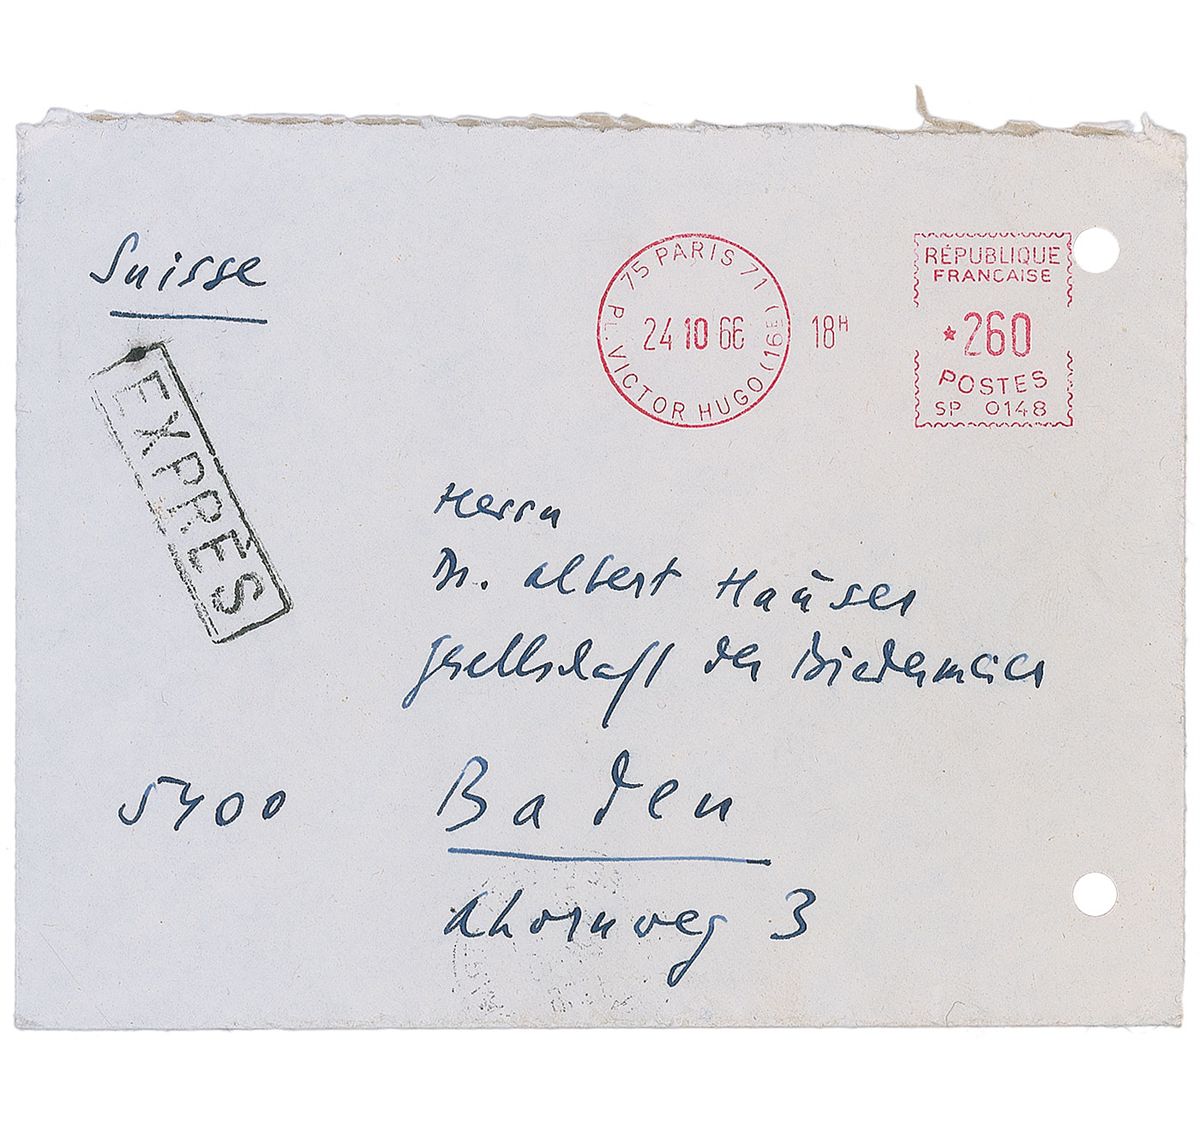 Suisse
75 PARIS 71
PL. VICTOR HUGO (16E)
24 10 66
18H
RÉPUBLIQUE
FRANÇAISE
*260
POSTES
SP 0148
EXPRÈS
Herrn
Dr. Albert Hauser
Gesellschaft der Biedermeier
5400 Baden
Ahornweg 3